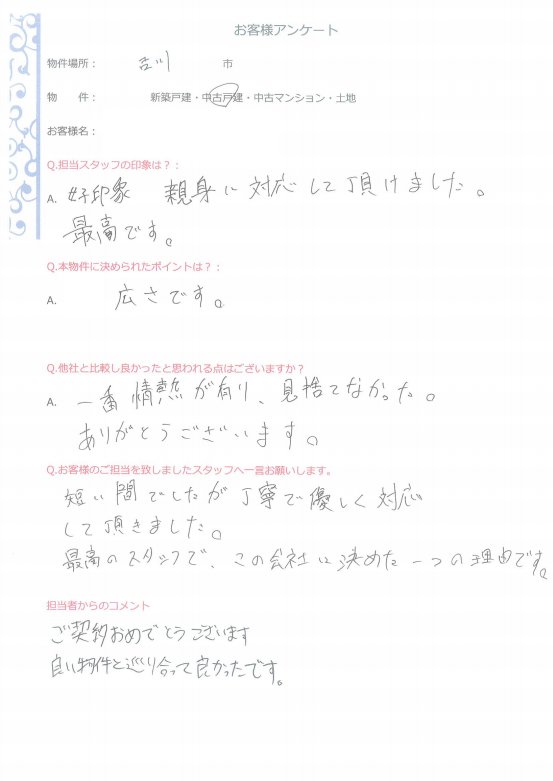 お客様アンケート
物件場所： 古川 市
物　　件： 新築戸建・中古戸建・中古マンション・土地
お客様名：
Q.担当スタッフの印象は？：
A. 好印象　親身に対応して頂けました。
最高です。
Q.本物件に決められたポイントは？：
A. 広さです。
Q.他社と比較し良かったと思われる点はございますか？
A. 一番情熱が有り、見捨てなかった。
ありがとうございます。
Q.お客様のご担当を致しましたスタッフへ一言お願いします。
短い間でしたが丁寧で優しく対応
して頂きました。
最高のスタッフで、この会社に決めた一つの理由です。
担当者からのコメント
ご契約おめでとうございます
良い物件と巡り合って良かったです。